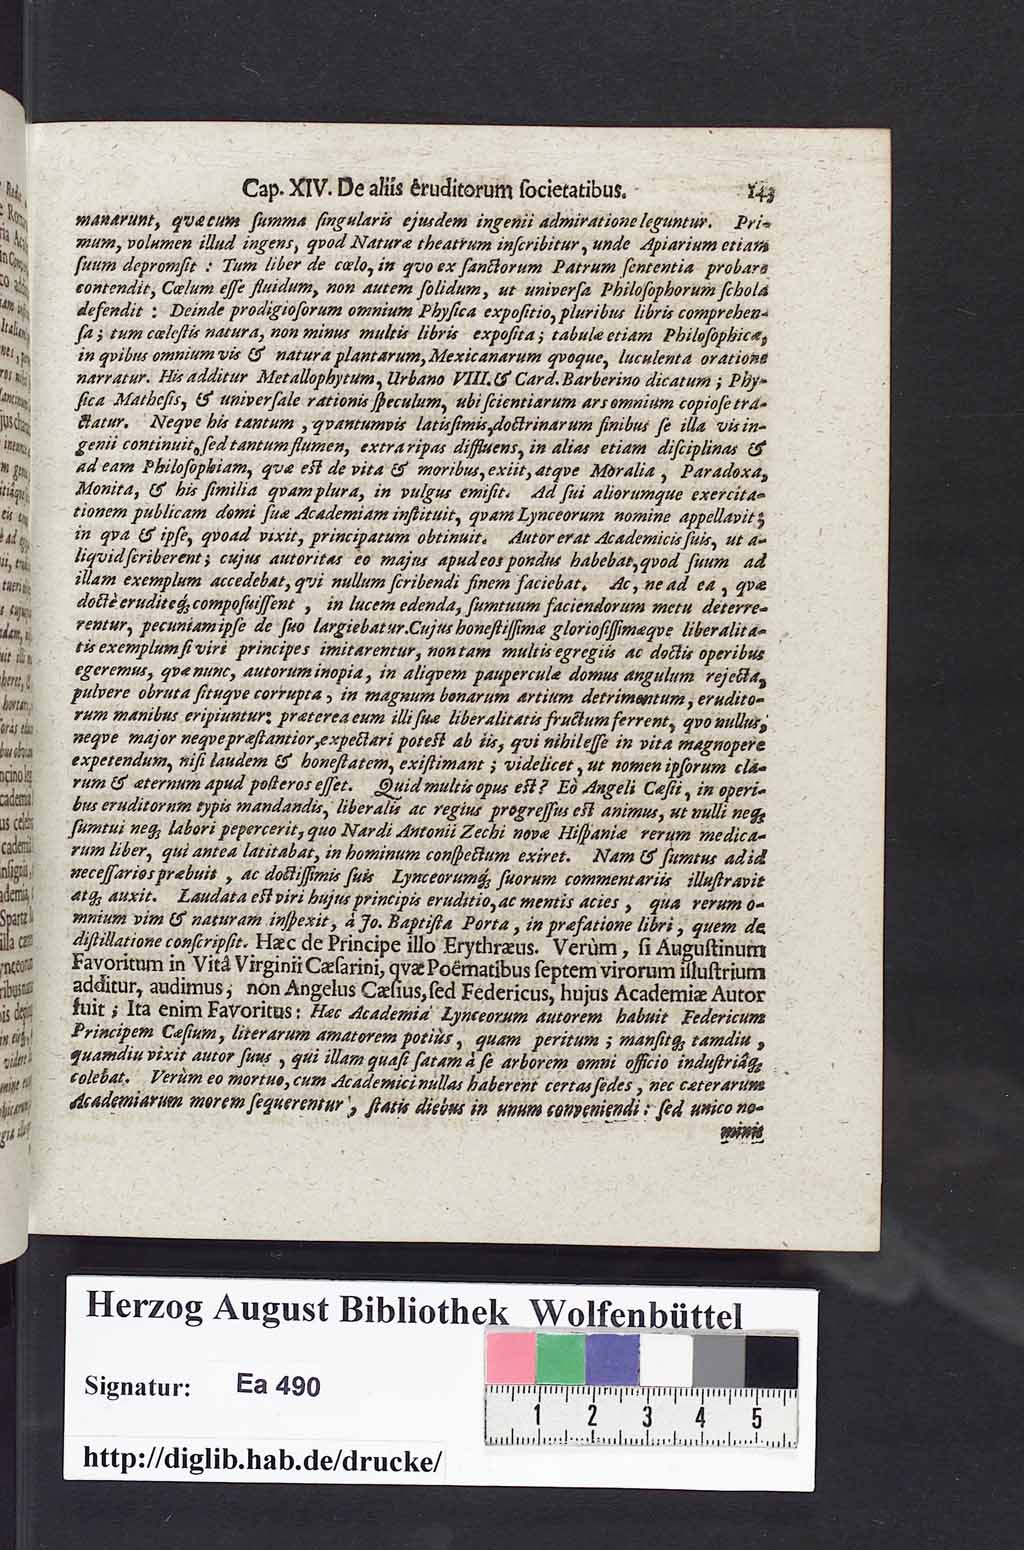 Cap. XIV. De aliis eruditorum ſocietatibus. 143
manarunt, qvæ cum ſumma ſingularis ejusdem ingenii admiratione leguntur. Pri-
mum, volumen illud ingens, qvod Naturæ theatrum inſcribitur, unde Apiarium etiam
ſuum depromſit : Tum liber de cœlo, in qvo ex ſanctorum Patrum ſententia probare
contendit, Cœlum eſſe fluidum, non autem ſolidum, ut univerſa Philoſophorum ſchola
defendit : Deinde prodigioſorum omnium Phyſica expoſitio, pluribus libris comprehen-
ſa; tum cœleſtis natura, non minus multis libris expoſita; tabulæ etiam Philoſophicæ,
in qvibus omnium vis & natura plantarum, Mexicanarum qvoque, luculenta oratione
narratur. His additur Metallophytum, Urbano VIII. & Card. Barberino dicatum ; Phy-
ſica Matheſis, & univerſale rationis ſpeculum, ubi ſcientiarum ars omnium copioſe tra-
ctatur. Neqve his tantum, qvantumvis latisſimis, doctrinarum finibus ſe illa vis in-
genii continuit, ſed tantum flumen, extra ripas diffluens, in alias etiam diſciplinas &
ad eam Philoſophiam, qvæ eſt de vita & moribus, exiit, atqve Moralia, Paradoxa,
Monita, & his ſimilia qvamplura, in vulgus emiſit. Ad ſui aliorumque exercita-
tionem publicam domi ſuæ Academiam inſtituit, qvam Lynceorum nomine appellavit;
in qva & ipſe, qvoad vixit, principatum obtinuit. Autor erat Academicis ſuis, ut a-
liqvid ſcriberent; cujus autoritas eo majus apud eos pondus habebat, qvod ſuum ad
illam exemplum accedebat, qvi nullum ſcribendi finem faciebat. Ac, ne ad ea, qvæ
doctè eruditeq́; compoſuiſſent, in lucem edenda, ſumtuum faciendorum metu deterre-
rentur, pecuniam ipſe de ſuo largiebatur. Cujus honeſtiſſimæ glorioſiſſimæqve liberalita-
tis exemplum ſi viri principes imitarentur, non tam multis egregiis ac doctis operibus
egeremus, qvæ nunc, autorum inopia, in aliqvem pauperculæ domus angulum rejecta,
pulvere obruta ſituqve corrupta, in magnum bonarum artium detrimentum, erudito-
rum manibus eripiuntur: præterea eum illi ſuæ liberalitatis fructum ferrent, qvo nullus,
neqve major neqve præſtantior, expectari poteſt ab iis, qvi nihil eſſe in vita magnopere
expetendum, niſi laudem & honeſtatem, exiſtimant; videlicet, ut nomen ipſorum cla-
rum & æternum apud poſteros eſſet. Quid multis opus eſt? Eò Angeli Cæſii, in operi-
bus eruditorum typis mandandis, liberalis ac regius progreſſus eſt animus, ut nulli neq́;
ſumtui neq́; labori pepercerit, quo Nardi Antonii Zechi novæ Hiſpaniæ rerum medica-
rum liber, qui antea latitabat, in hominum conſpectum exiret. Nam & ſumtus ad id
neceſſarios præbuit, ac doctiſſimis ſuis Lynceorumq́; ſuorum commentariis illuſtravit
atq́; auxit. Laudata eſt viri hujus principis eruditio, ac mentis acies, qua rerum o-
mnium vim & naturam inſpexit, à Jo. Baptiſta Porta, in præfatione libri, quem de
diſtillatione conſcripſit. Hæc de Principe illo Erythræus. Verùm, ſi Auguſtinum
Favoritum in Vitâ Virginii Cæſarini, qvæ Poëmatibus ſeptem virorum illuſtrium
additur, audimus, non Angelus Cæſius, ſed Federicus, hujus Academiæ Autor
fuit ; Ita enim Favoritus: Hæc Academia Lynceorum autorem habuit Federicum
Principem Cæſium, literarum amatorem potiùs, quam peritum ; manſitq́; tamdiu,
quamdiu vixit autor ſuus, qui illam quaſi ſatam à ſe arborem omni officio induſtriáq́;
colebat. Verùm eo mortuo, cum Academici nullas haberent certas ſedes, nec cæterarum
Academiarum morem ſequerentur, ſtatis diebus in unum conveniendi: ſed unico no-
minis
Herzog August Bibliothek Wolfenbüttel
Signatur: Ea 490
1 2 3 4 5
http://diglib.hab.de/drucke/